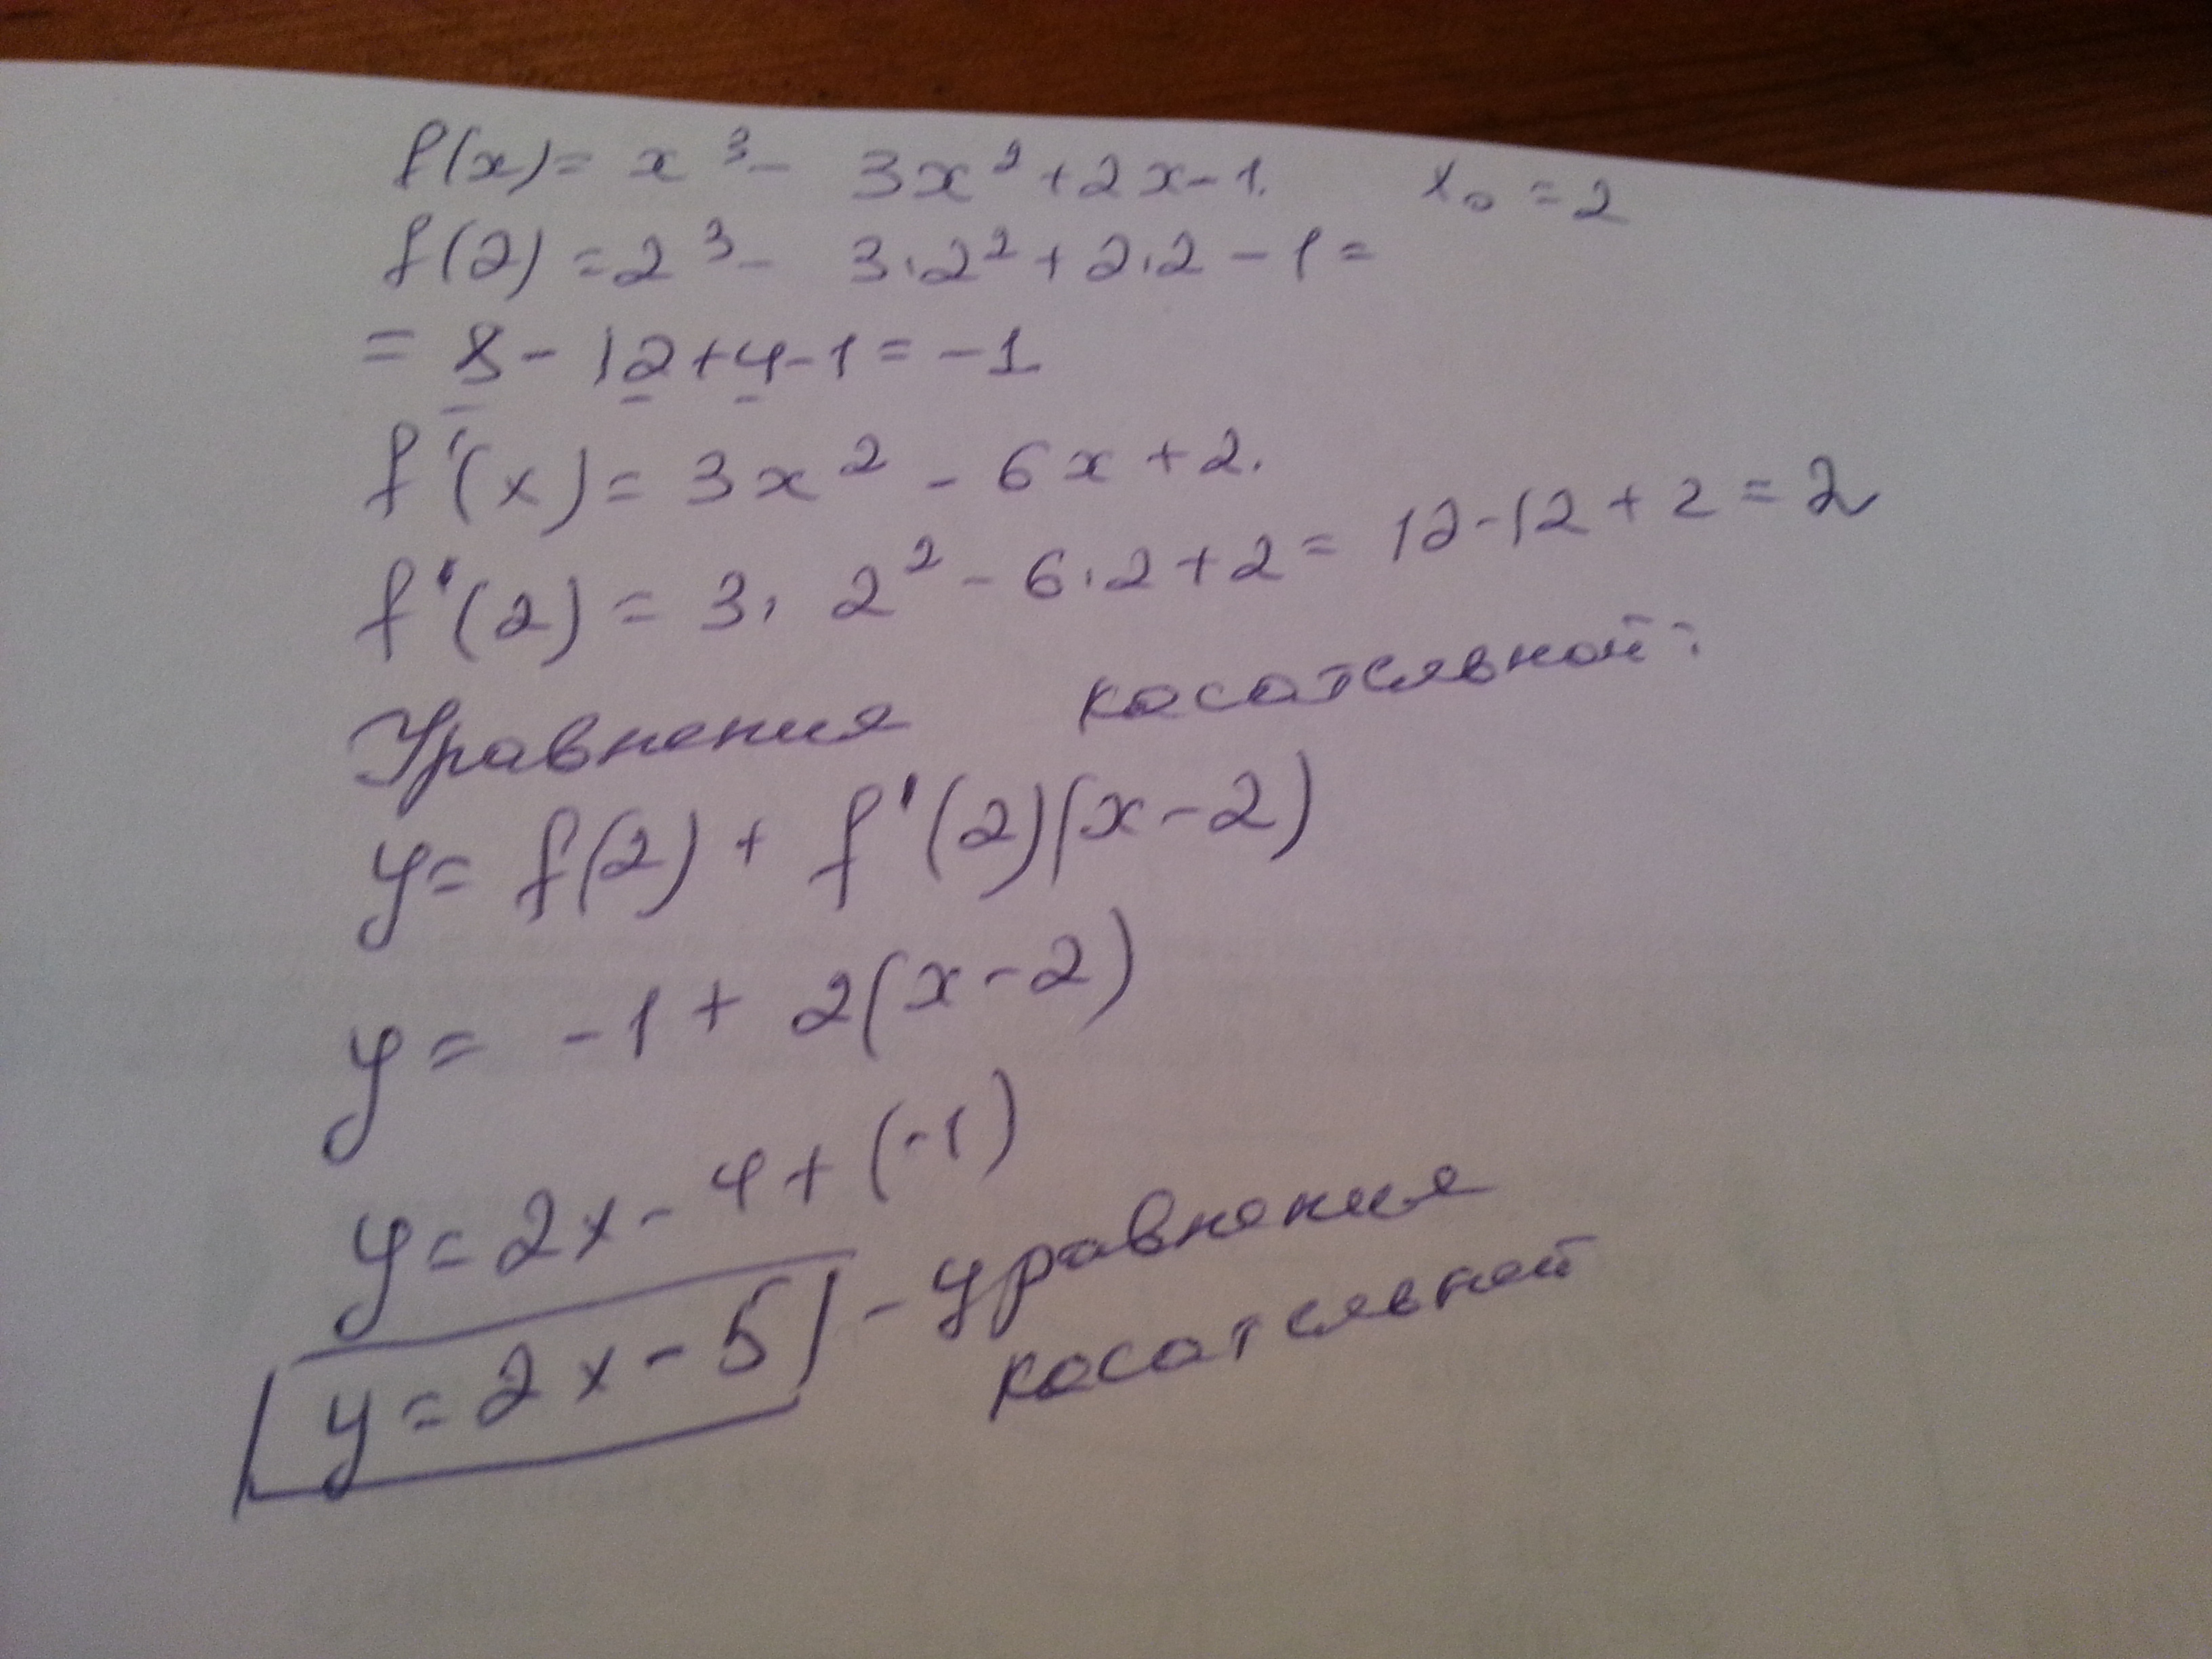 f(x) = x³ - 3x² + 2x - 1. x₀ = 2
f(2) = 2³ - 3·2² + 2·2 - 1 =
= 8 - 12 + 4 - 1 = -1
f'(x) = 3x² - 6x + 2.
f'(2) = 3· 2² - 6·2 + 2 = 12 - 12 + 2 = 2
Уравнения касательной:
y = f(2) + f'(2)(x - 2)
y = -1 + 2(x - 2)
y = 2x - 4 + (-1)
y = 2x - 5 - уравнения
касательной